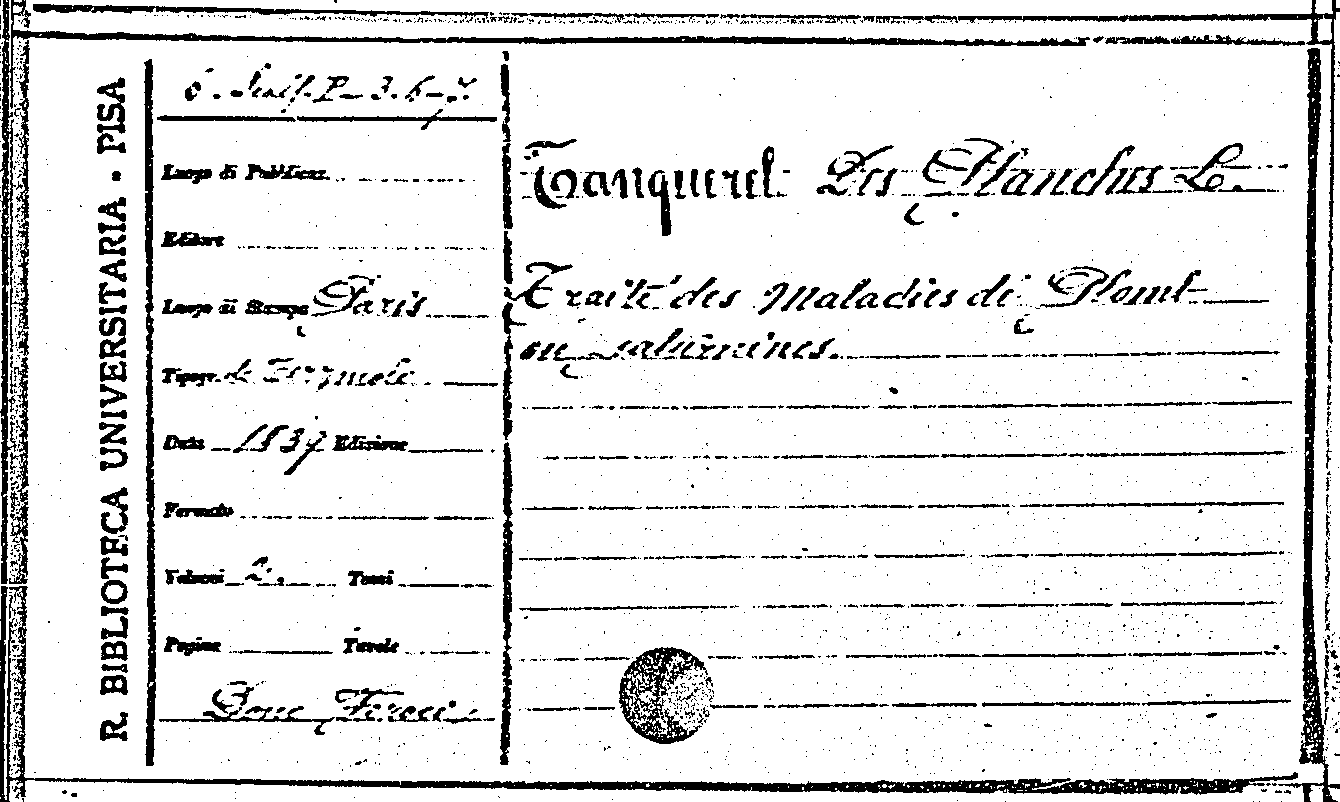 R. BIBLIOTECA UNIVERSITARIA - PISA
6. Scaff. P - 3. 6-7.
Luogo di Pubblicaz.
Editore
Luogo di Stampa Paris
Tipogr. de
Data 1839 Edizione
Formato
Volumi 2. Tomi
Pagine Tavole
Dono Feroci
Tanquerel Des Planches L.
Traité des Maladies di Plomb
ou saturnines.